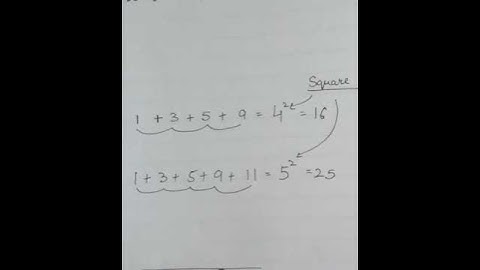 Square
1 + 3 + 5 + 9 = 4² = 16
1 + 3 + 5 + 9 + 11 = 5² = 25